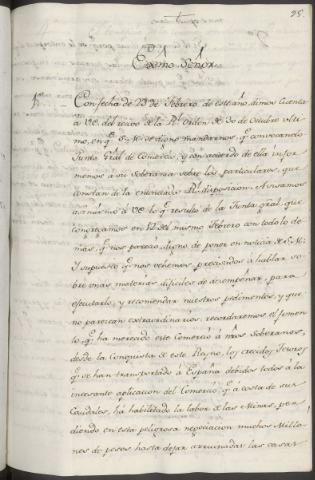 95.
Exmo Señor
Con fecha de 23 de Febrero de este año dimos Cuenta
à V.E. del recivo de la Rl Orden de 30 de Octubre ulti-
mo, en qe S.M. se dignó mandarnos qe convocando
Junta Gral de Comercio, y con acuerdo de ella infor-
memos à su Soberania sobre los particulares, que
constan de la enunciada Rl disposicion. Avisamos
asimismo à V.E. lo qe resultó de la Junta gral, que
congregamos en 12 del mismo Febrero con todo lo de-
mas, qe nos pareció digno de poner en noticia de S.M.
Y supuesto qe nos vehemos precisados à hablar so-
bre unas materias dificiles de desempeñar, para
efectuarlo, y recomendar nuestros pedimentos, y que
no parezcan extraordinarios, recordaremos el fomen-
to qe ha merecido este Comercio à nros Soberanos,
desde la Conquista de este Reyno, los crecidos Tesoros
qe se han transportado à España debidos todos à la
interesante aplicacion del Comercio qe à costa de sus
Caudales, ha habilitado la labor de las Minas, per-
diendo en esta peligrosa negociacion muchos Millo-
nes de pesos hasta dejar arruinadas las casas